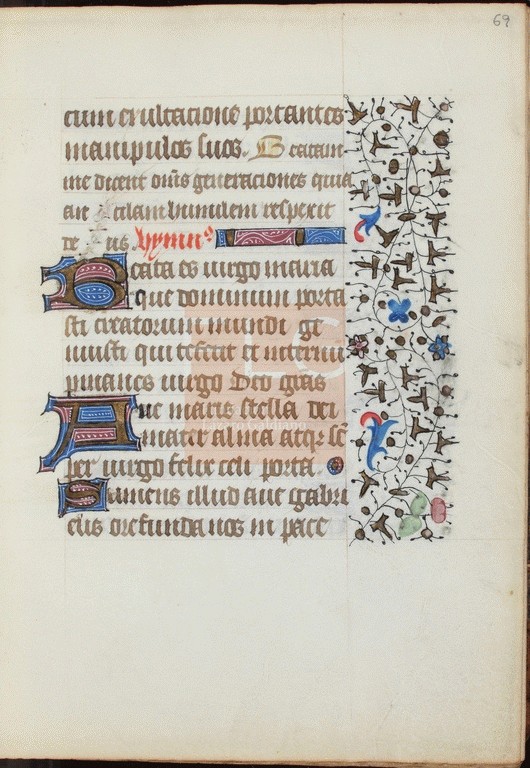 69
cum exultacione portantes
manipulos suos. Beatam
me dicent om̄s generaciones quia
an cilam humilem respexit
de us. hymnᵒ
Beata es uirgo maria
que dominum porta
sti creatorum mundi ge
nuisti qui te fecit et in eternū
pmanes uirgo Deo gr̄as
Aue maris stella dei
mater alma atqȝ sē
per uirgo felix celi porta
Sumens illud aue gabri
elis ore funda nos in pace
TLG
Lázaro Galdiano